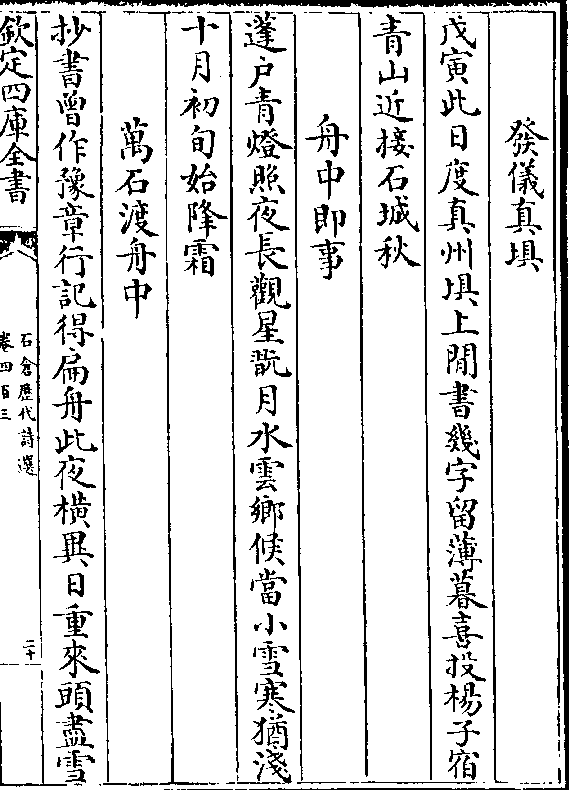 發儀真垻
戊寅此日度真州垻上閒書幾字留薄暮喜投楊子宿
青山近接石城秋
舟中即事
蓬户青燈照夜長觀星翫月水雲鄉候當小雪寒猶淺
十月初旬始降霜
萬石渡舟中
抄書曾作豫章行記得扁舟此夜橫異日重來頭盡雪
欽定四庫全書
石倉歷代詩選
卷四百三
二十